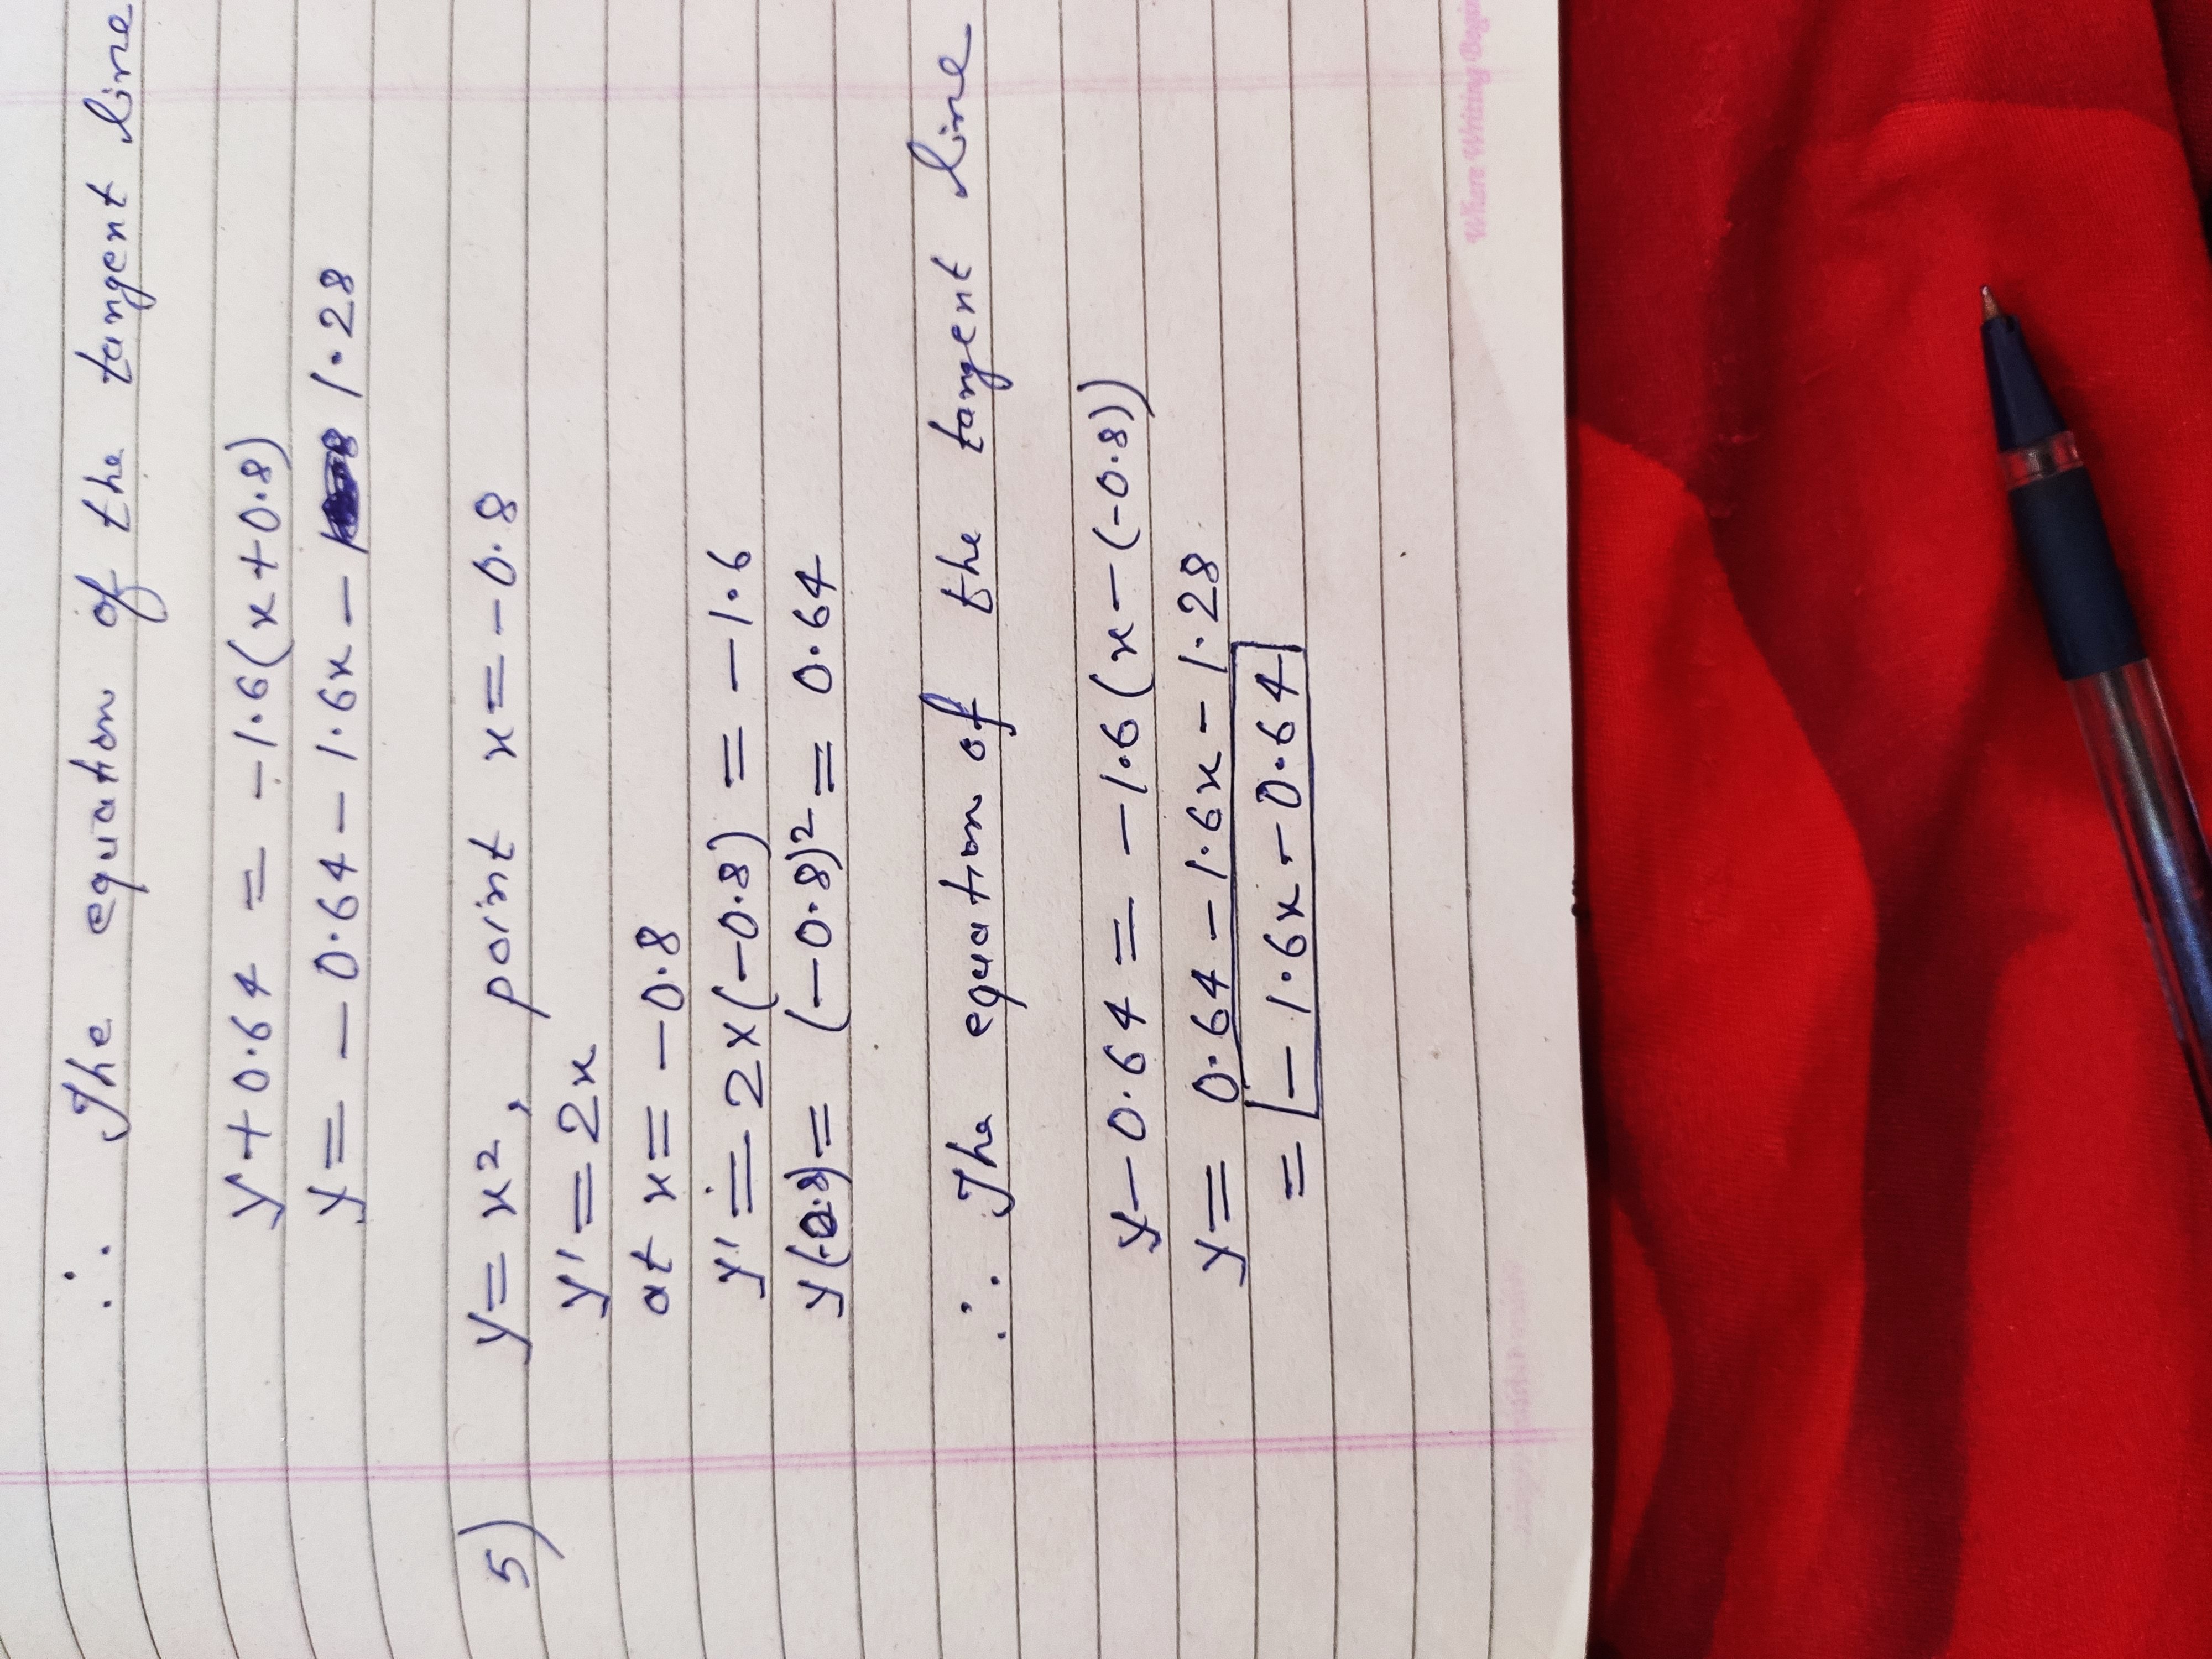 ∴ The equation of the tangent line
y + 0.64 = -1.6(x + 0.8)
y = -0.64 - 1.6x - 1.28
5) y = x², point x = -0.8
y' = 2x
at x = -0.8
y' = 2x(-0.8) = -1.6
y(-0.8) = (-0.8)² = 0.64
∴ The equation of the tangent line
y - 0.64 = -1.6(x - (-0.8))
y = 0.64 - 1.6x - 1.28
= -1.6x - 0.64
Where Writing Begins